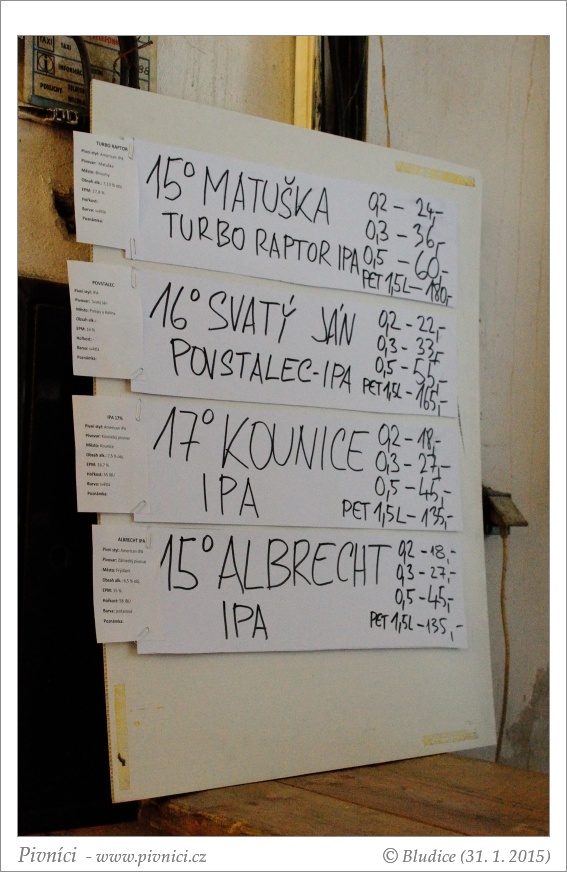 TAXI TAXI
INFORMAC
TURBO RAPTOR
Pivní styl: American IPA
Pivovar: Matuška
Město: Broumy
EPM:
Hořkost:
Barva: světlá
Poznámka:
15° MATUŠKA
TURBO RAPTOR IPA
0,2 – 24,-
0,3 – 36,-
0,5 – 60,-
PET 1,5L – 180,-
POVSTALEC
Pivní styl: IPA
Pivovar: Svatý Ján
Město:
Obsah alk.:
EPM: 16 %
Hořkost:
Barva: světlá
Poznámka:
16° SVATÝ JÁN
POVSTALEC-IPA
0,2 – 22,-
0,3 – 33,-
0,5 – 55,-
PET 1,5L – 165,-
IPA 17%
Pivní styl: American IPA
Pivovar: Kounický pivovar
Město: Kounice
Obsah alk.: 7,5 % obj.
EPM: 16,7 %
Hořkost:
Barva: světlá
Poznámka:
17° KOUNICE
IPA
0,2 – 18,-
0,3 – 27,-
0,5 – 45,-
PET 1,5L – 135,-
ALBRECHT IPA
Pivní styl: American IPA
Pivovar: Zámecký pivovar
Město: Frýdlant
Obsah alk.: 6,5 % obj.
EPM: 15 %
Hořkost:
Barva: polotmavá
Poznámka:
15° ALBRECHT
IPA
0,2 – 18,-
0,3 – 27,-
0,5 – 45,-
PET 1,5L – 135,-
Pivníci - www.pivnici.cz
© Bludice (31. 1. 2015)